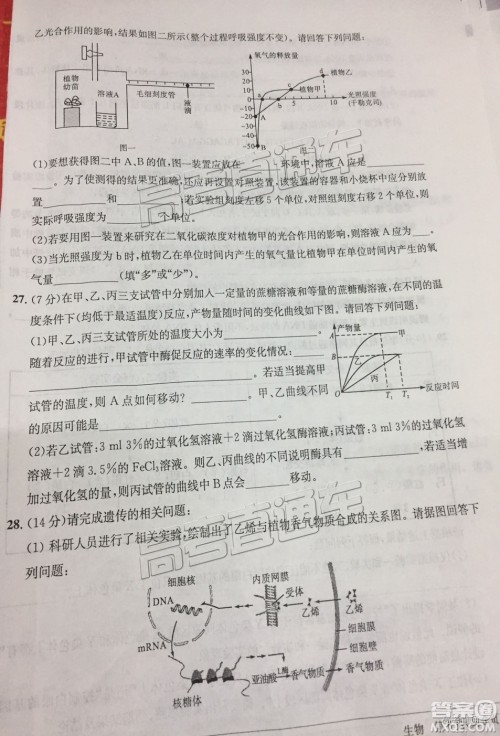 乙光合作用的影响,结果如图二所示(整个过程呼吸强度不变)。请回答下列问题:
植物
幼苗
溶液A
毛细刻度管
液
滴
图一
氧气的释放量
植物乙
植物甲
光照强度
(千勒克司)
(1)要想获得图二中A、B的值,图一装置应放在________环境中,溶液A应是________
____。为了使测得的结果更准确,还应再设置对照装置,该装置的容器和小烧杯中应分别放
置________和________,若实验组刻度左移5个单位,对照组刻度右移2个单位,则
实际呼吸强度为________个单位。
(2)若要用图一装置来研究在二氧化碳浓度对植物甲的光合作用的影响,则溶液A应为________。
(3)当光照强度为b时,植物乙在单位时间内产生的氧气量比植物甲在单位时间内产生的氧
气量________(填“多”或“少”)。
27.(7分)在甲、乙、丙三支试管中分别加入一定量的蔗糖溶液和等量的蔗糖酶溶液,在不同的温
度条件下(均低于最适温度)反应,产物量随时间的变化曲线如下图。请回答下列问题:
(1)甲、乙、丙三支试管所处的温度大小为________。
随着反应的进行,甲试管中酶促反应的速率的变化情况:________
________。若适当提高甲
试管的温度,则A点如何移动?________。甲、乙曲线不同
的原因是________。
产物量
A
B
甲
乙
丙
T₁
T₂
反应时间
(2)若乙试管:3 ml 3%的过氧化氢溶液+2滴过氧化氢酶溶液,丙试管:3 ml 3%的过氧化氢
溶液+2滴3.5%的FeCl₃溶液。则乙、丙曲线的不同说明酶具有________,适当增
加过氧化氢的量,则丙试管的曲线中B点会________移动。
28.(14分)请完成遗传的相关问题:
(1)科研人员进行了相关实验,绘制出了乙烯与植物香气物质合成的关系图。请据图回答下
列问题:
细胞核
DNA
mRNA
核糖体
内质网膜
受体
乙烯
乙烯
细胞膜
细胞壁
亚油酸
L酶
香气物质
香气物质
生物